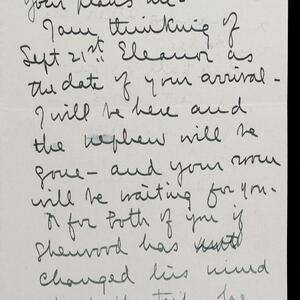 your plans are -
I am thinking of
Sept 21st. Eleanor as
the date of your arrival -
I will be here and
the nephew will be
gone - and your room
will be waiting for you.
A for both of you if
Sherwood has
changed his mind